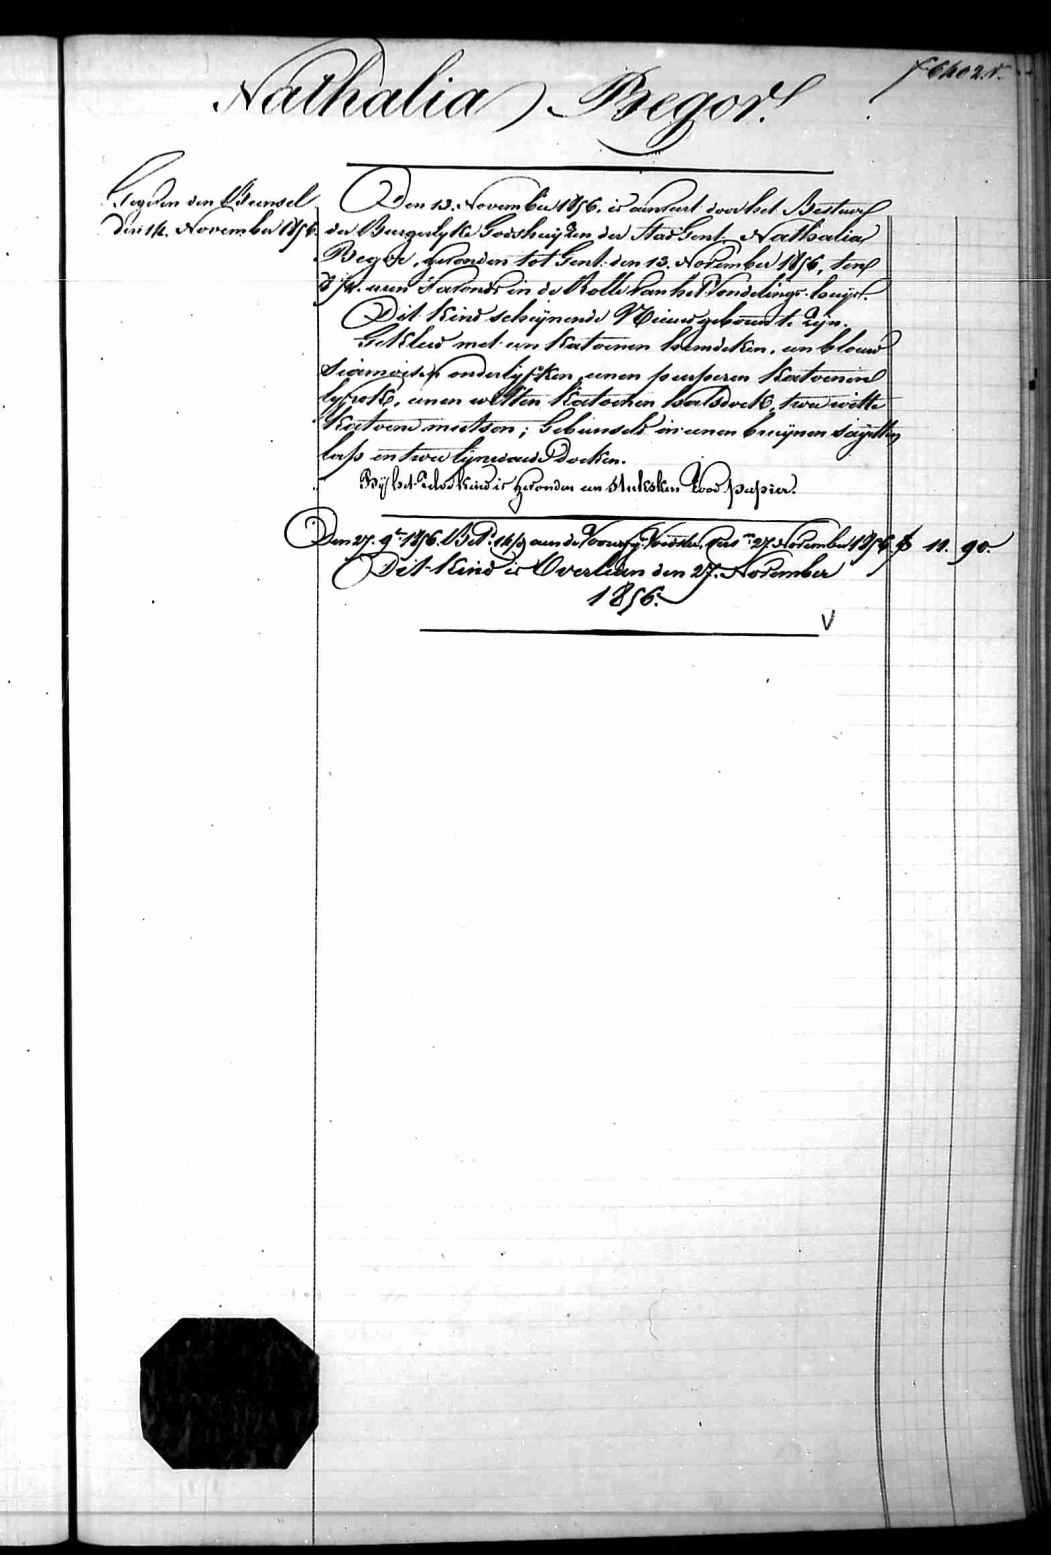 Nathalia Begor.
Gegeven den Bunsel
den 14. November 1856.
Den 13. November 1856. is aenveert door het Bestuur
der Burgerlyke Godshuijzen der Stad Gent. Nathalia
Begor, gevonden tot Gent. den 13. November 1856, ten
uren s'avonds in de Rolle van het Vondelings-huijs.
Dit Kind schijnende Nieuwgeboren te zijn.
Gekleed met een katoenen hemdeken, een blauw
Siamoisen onderlyfken, eenen purperen katoenen
lyfrok, eenen witten katoenen halsdoek, twee witte
katoene mutsen; Gebunseld in eenen bruijnen sayetten
lap en twee lynwaede doeken.
Bij het zelve kind is gevonden een stuksken Rood papier.
Den 27. 9ber 1856. Bet. aen de 27. November 1856. 11. 90.
Dit kind is Overleden den 27. November
1856.
V